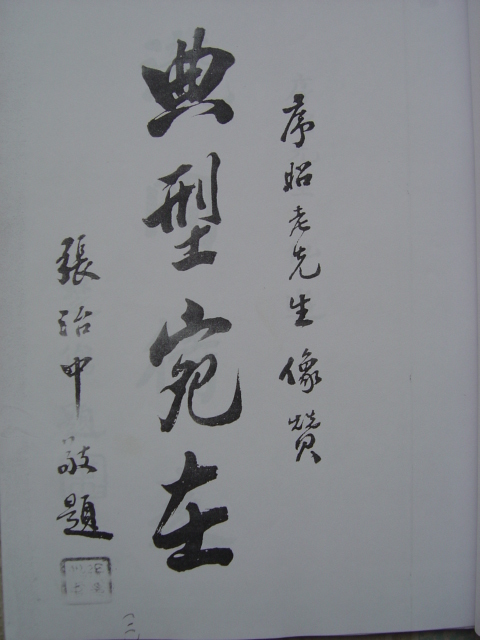 序昭老先生像贊
典型宛在
張治中敬題
(一)